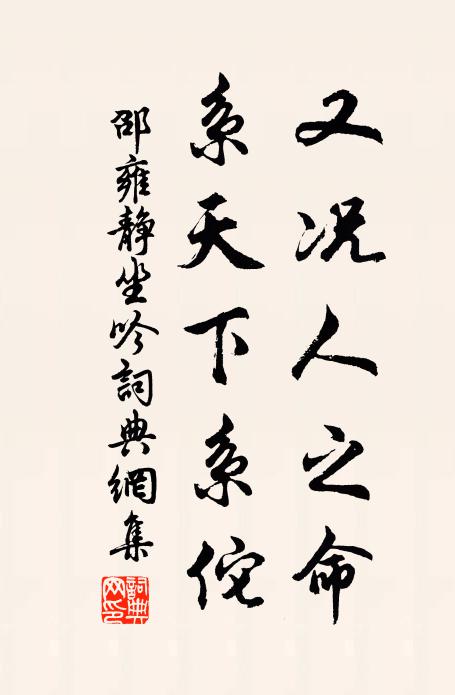 又况人之命
系天下系佗
邵雍静坐吟詞典網集
詞典网印